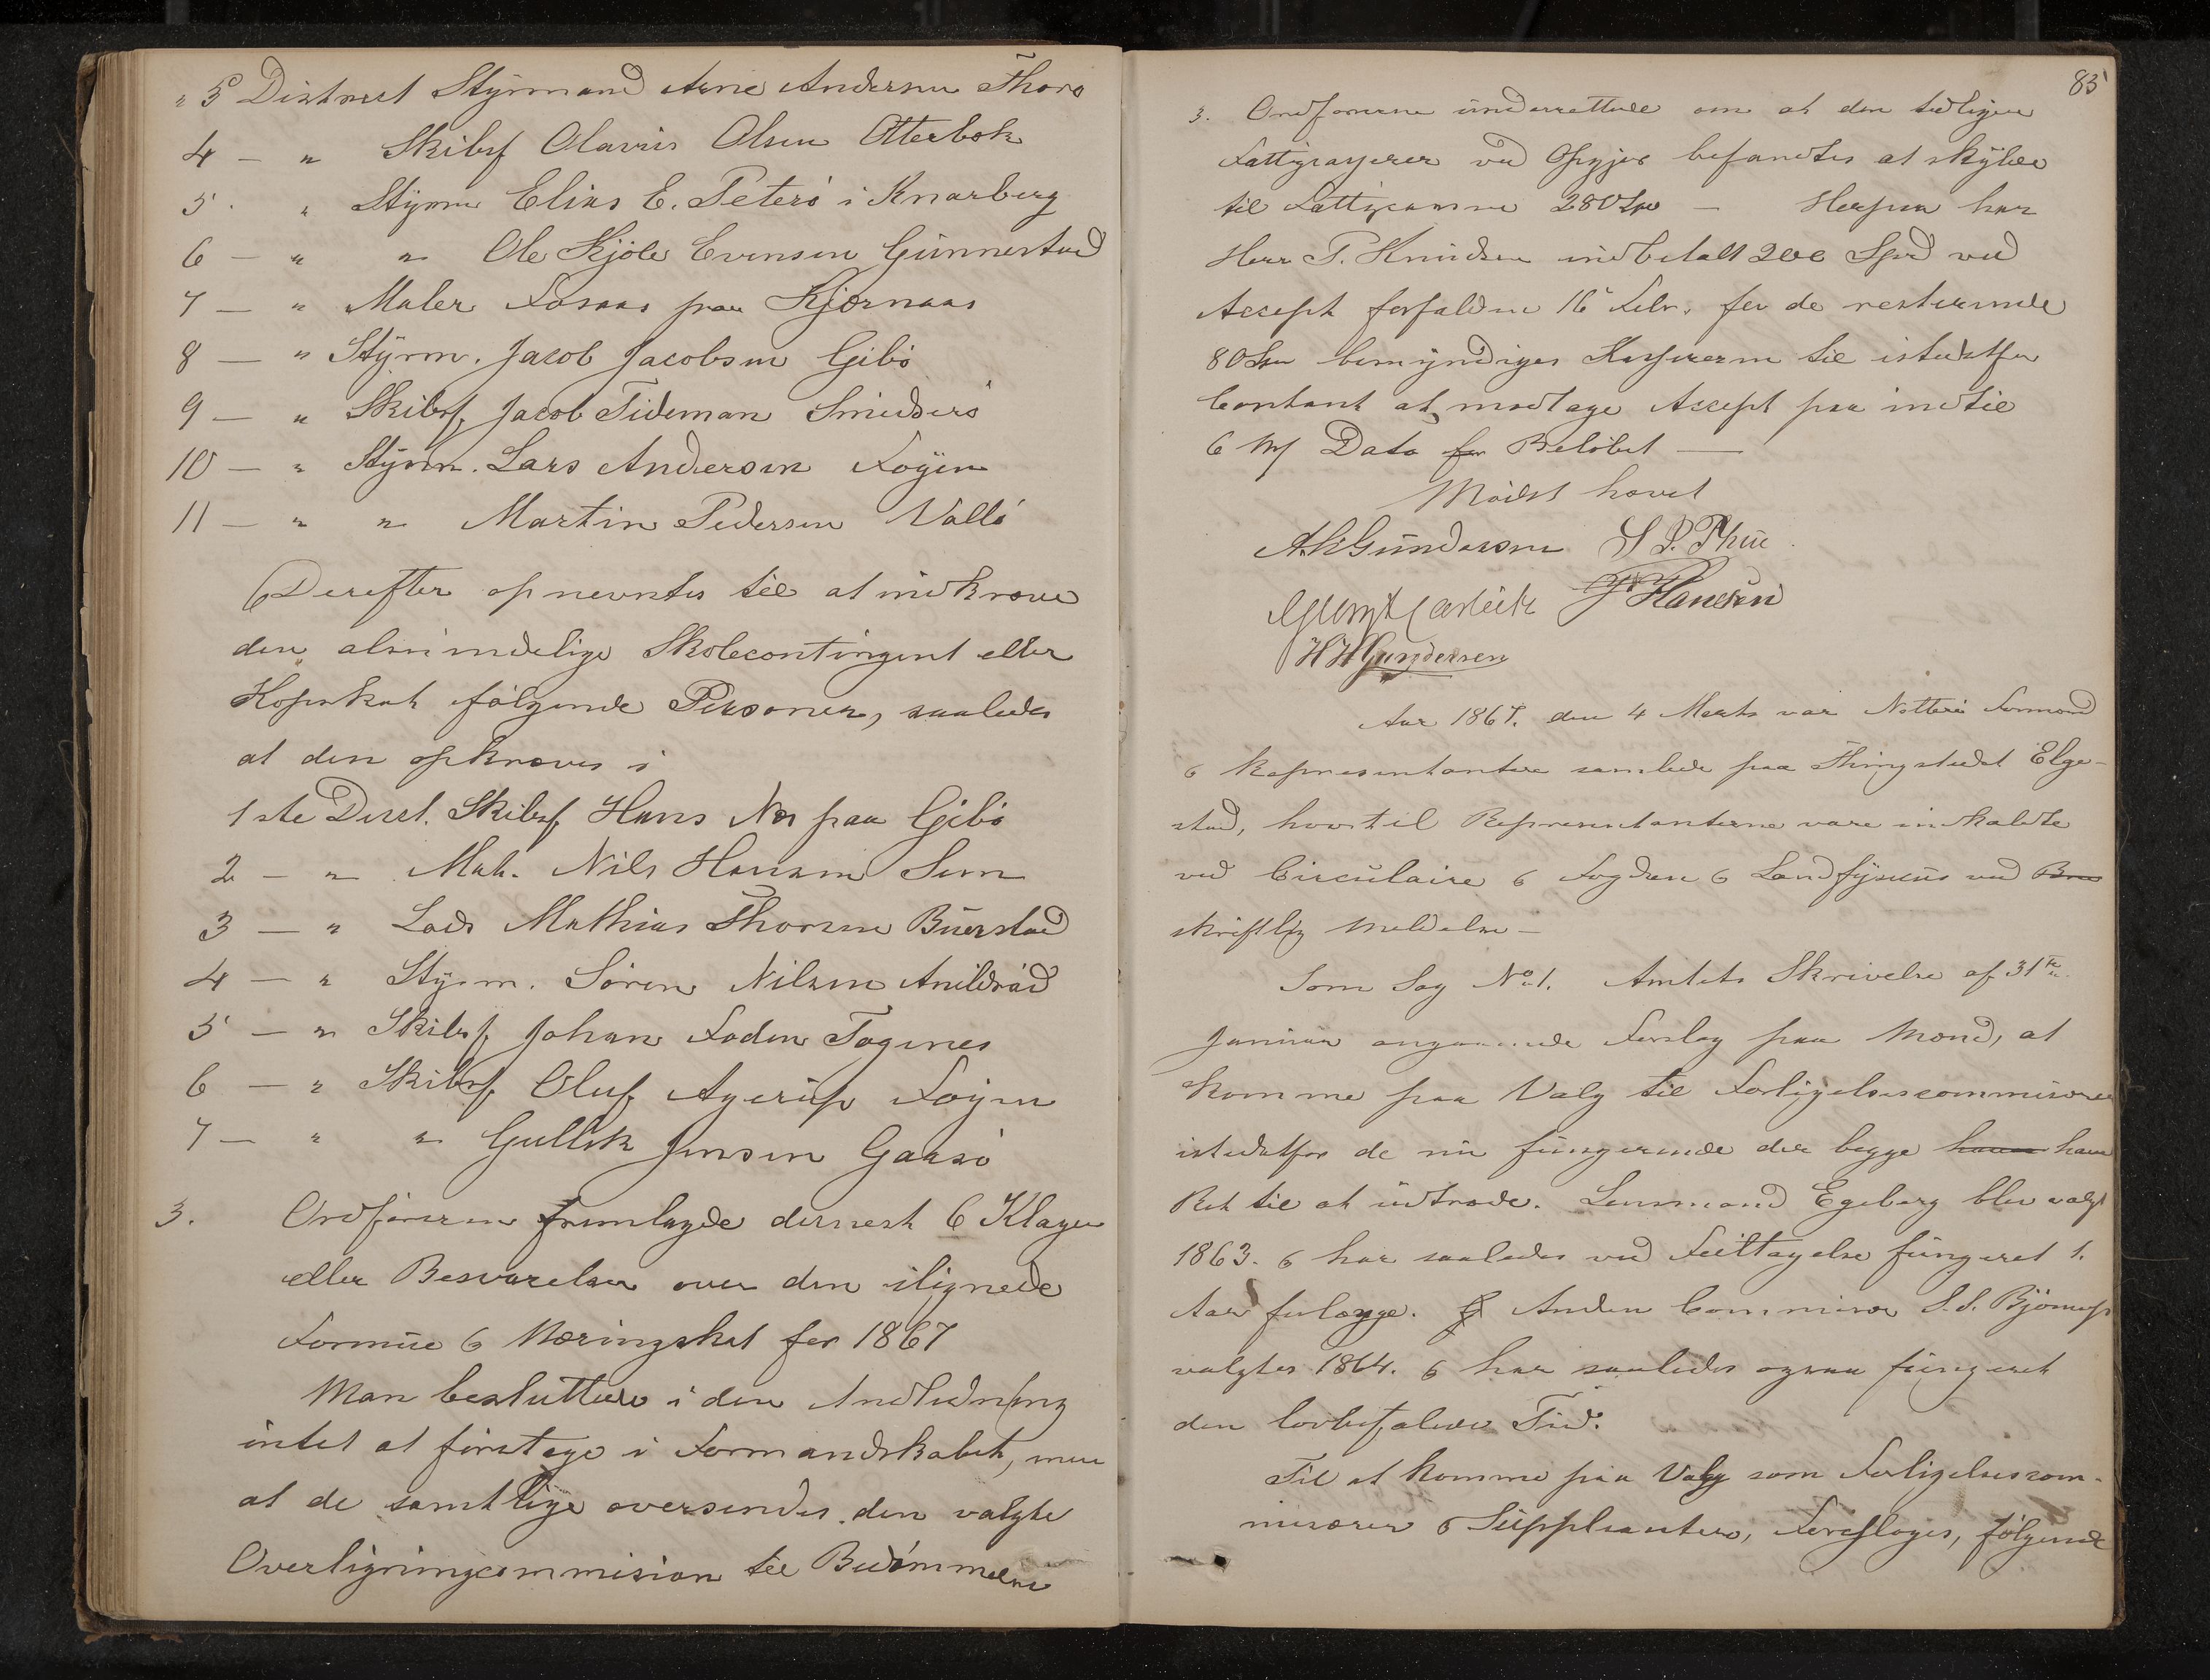 " 3 District Styrmand Arne Andersen Thorø
4 — " Skibsf Olavus Olsen Otterbek
5 . " Styrm Elias E. Peterö i Knarberg
6 — " " Ole Kjöle Evensen Gunnestad
7 — " Maler Fosaas paa Kjærnaas
8 — " Styrm. Jacob Jacobsen Gibö
9 — " Skibsf Jacob Tideman Smidsrö
10 — " Styrm. Lars Andersen Föyen
11 — " " Martin Pedersen Vallö
Derefter opnevntes til at indkræve
den almindelige Skolecontingent eller
Kopskat følgende Personer, saaledes
at den opkræves i
1ste Dist. Skibsf Hans Næs paa Gibö
2 — " Mat. Nils Hansen Sem
3 — " Lods Mathias Thorsen Buerstad
4 — " Styrm. Sören Nilsen Arildsröd
5 — " Skibsf Johan Foden Togenes
6 — " Skibsf Oluf Agerup Föyen
7 — " " Gullik Jensen Gaasö
3. Ordføreren fremlagde dernest 6 Klager
eller Besværelser over den ilignede
Formue & Næringskat for 1867
Man besluttede i den Andledning
intet at foretage i Formandskabet, men
at de samtlige oversendes den valgte
Overligningcommision til Bedömmelse
85
3. Ordføreren underrettede om at den tidligere
Fattigcasserer ved Opgjør befandtes at skylde
til Fattigcassen 280 Spd — Herpaa har
Herr P. Knudsen indbetalt 200 Spd ved
Accept forfalden 16 Febr. for de resterende
80 Spd bemyndiges Kassereren til istedetfor
Contant at modtage Accept paa indtil
6 M/ Dato for Beløbet —
Mödet hævet
A.K Gundersen S P. Thue
Hansen
H H Gundersen
Aar 1867. den 4 Marts var Nötterö Formænd
& Repræsentantere samlede paa Thingstedet Elge-
stad, hvortil Repræsentanterne vare indkaldte
ved Circulaire & Fogden & Landfysicus ved
skriftlig Meldelse —
Som Sag No 1. Amtets Skrivelse af 31te
Januar angaaende Forslag paa Mænd, at
komme paa Valg til Forligelsescommisærer
istedetfor de nu fungerende der begge have have
Ret til at udtræde. Lensmand Egeberg blev valgt
1863. & har saaledes ved Feiltagelse fungeret 1.
Aar forlænge. Anden Commisær S. S. Björnep
valgtes 1864. & har saaledes ogsaa fungeret
den lovbefalede Tid.
Til at komme paa Valg som Forligelsescom-
misærer & Suppleanter, foreslages, følgende